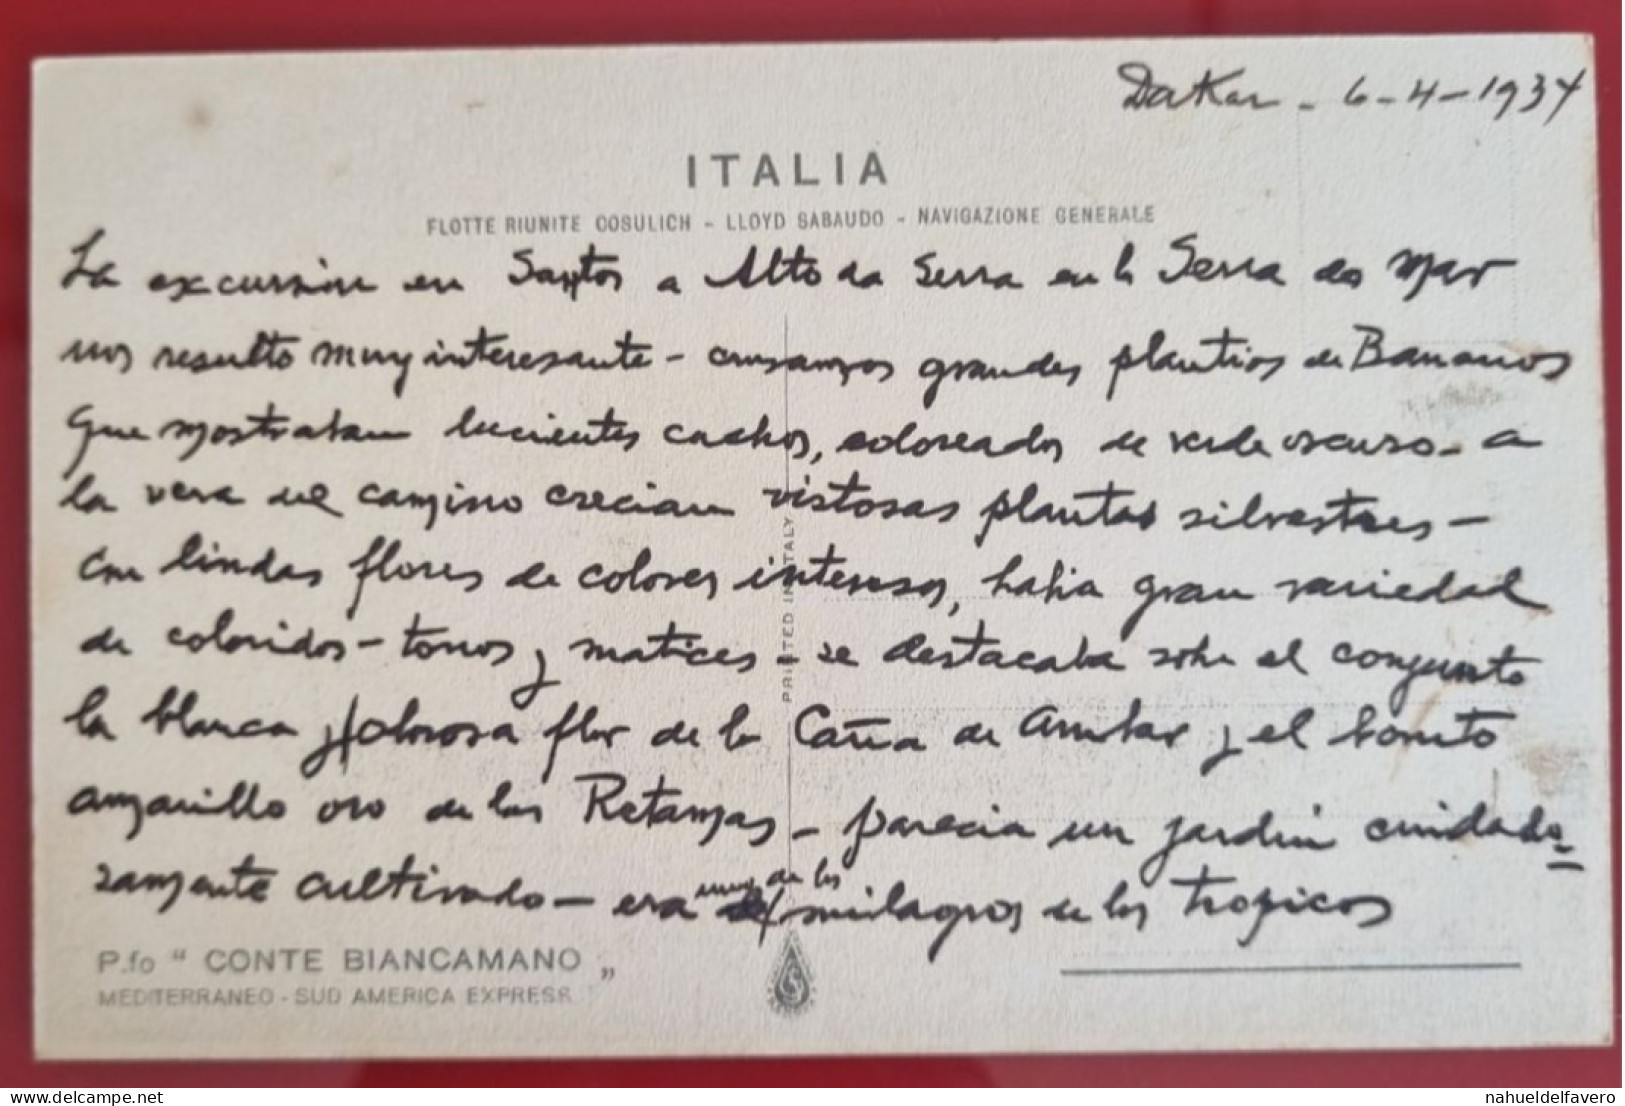 Dakar - 6-4-1934
ITALIA
FLOTTE RIUNITE COSULICH - LLOYD SABAUDO - NAVIGAZIONE GENERALE
La excursión en Santos a Alto da Serra en la Serra do Mar
nos resulto muy interesante - cruzamos grandes plantios de Bananos
que mostraban lucientes cachos, coloreados de verde oscuro - a
la vera del camino crecian vistosas plantas silvestres -
con lindas flores de colores intensos, habia gran variedad
de coloridos - tonos y matices - se destacaba sobre el conjunto
la blanca y olorosa flor de la Caña de Ambar y el bonito
amarillo oro de las Retamas - parecia un jardin cuidado=
samente cultivado - era uno de los milagros de los tropicos
PRINTED IN ITALY
P.fo " CONTE BIANCAMANO „
MEDITERRANEO - SUD AMERICA EXPRESS
delcampe.net
nahueldelfavero